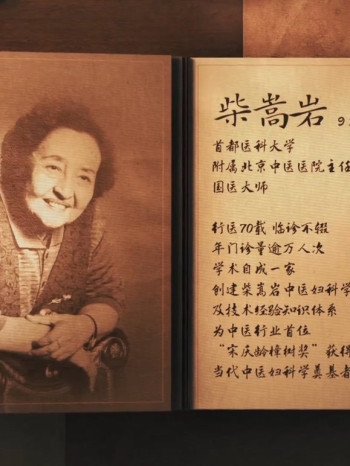 柴嵩岩 9
首都医科大学
附属北京中医医院主任
国医大师
行医70载 临诊不辍
年门诊量逾万人次
学术自成一家
创建柴嵩岩中医妇科学
及技术经验知识体系
为中医行业首位
“宋庆龄樟树奖”获得
当代中医妇科学奠基者